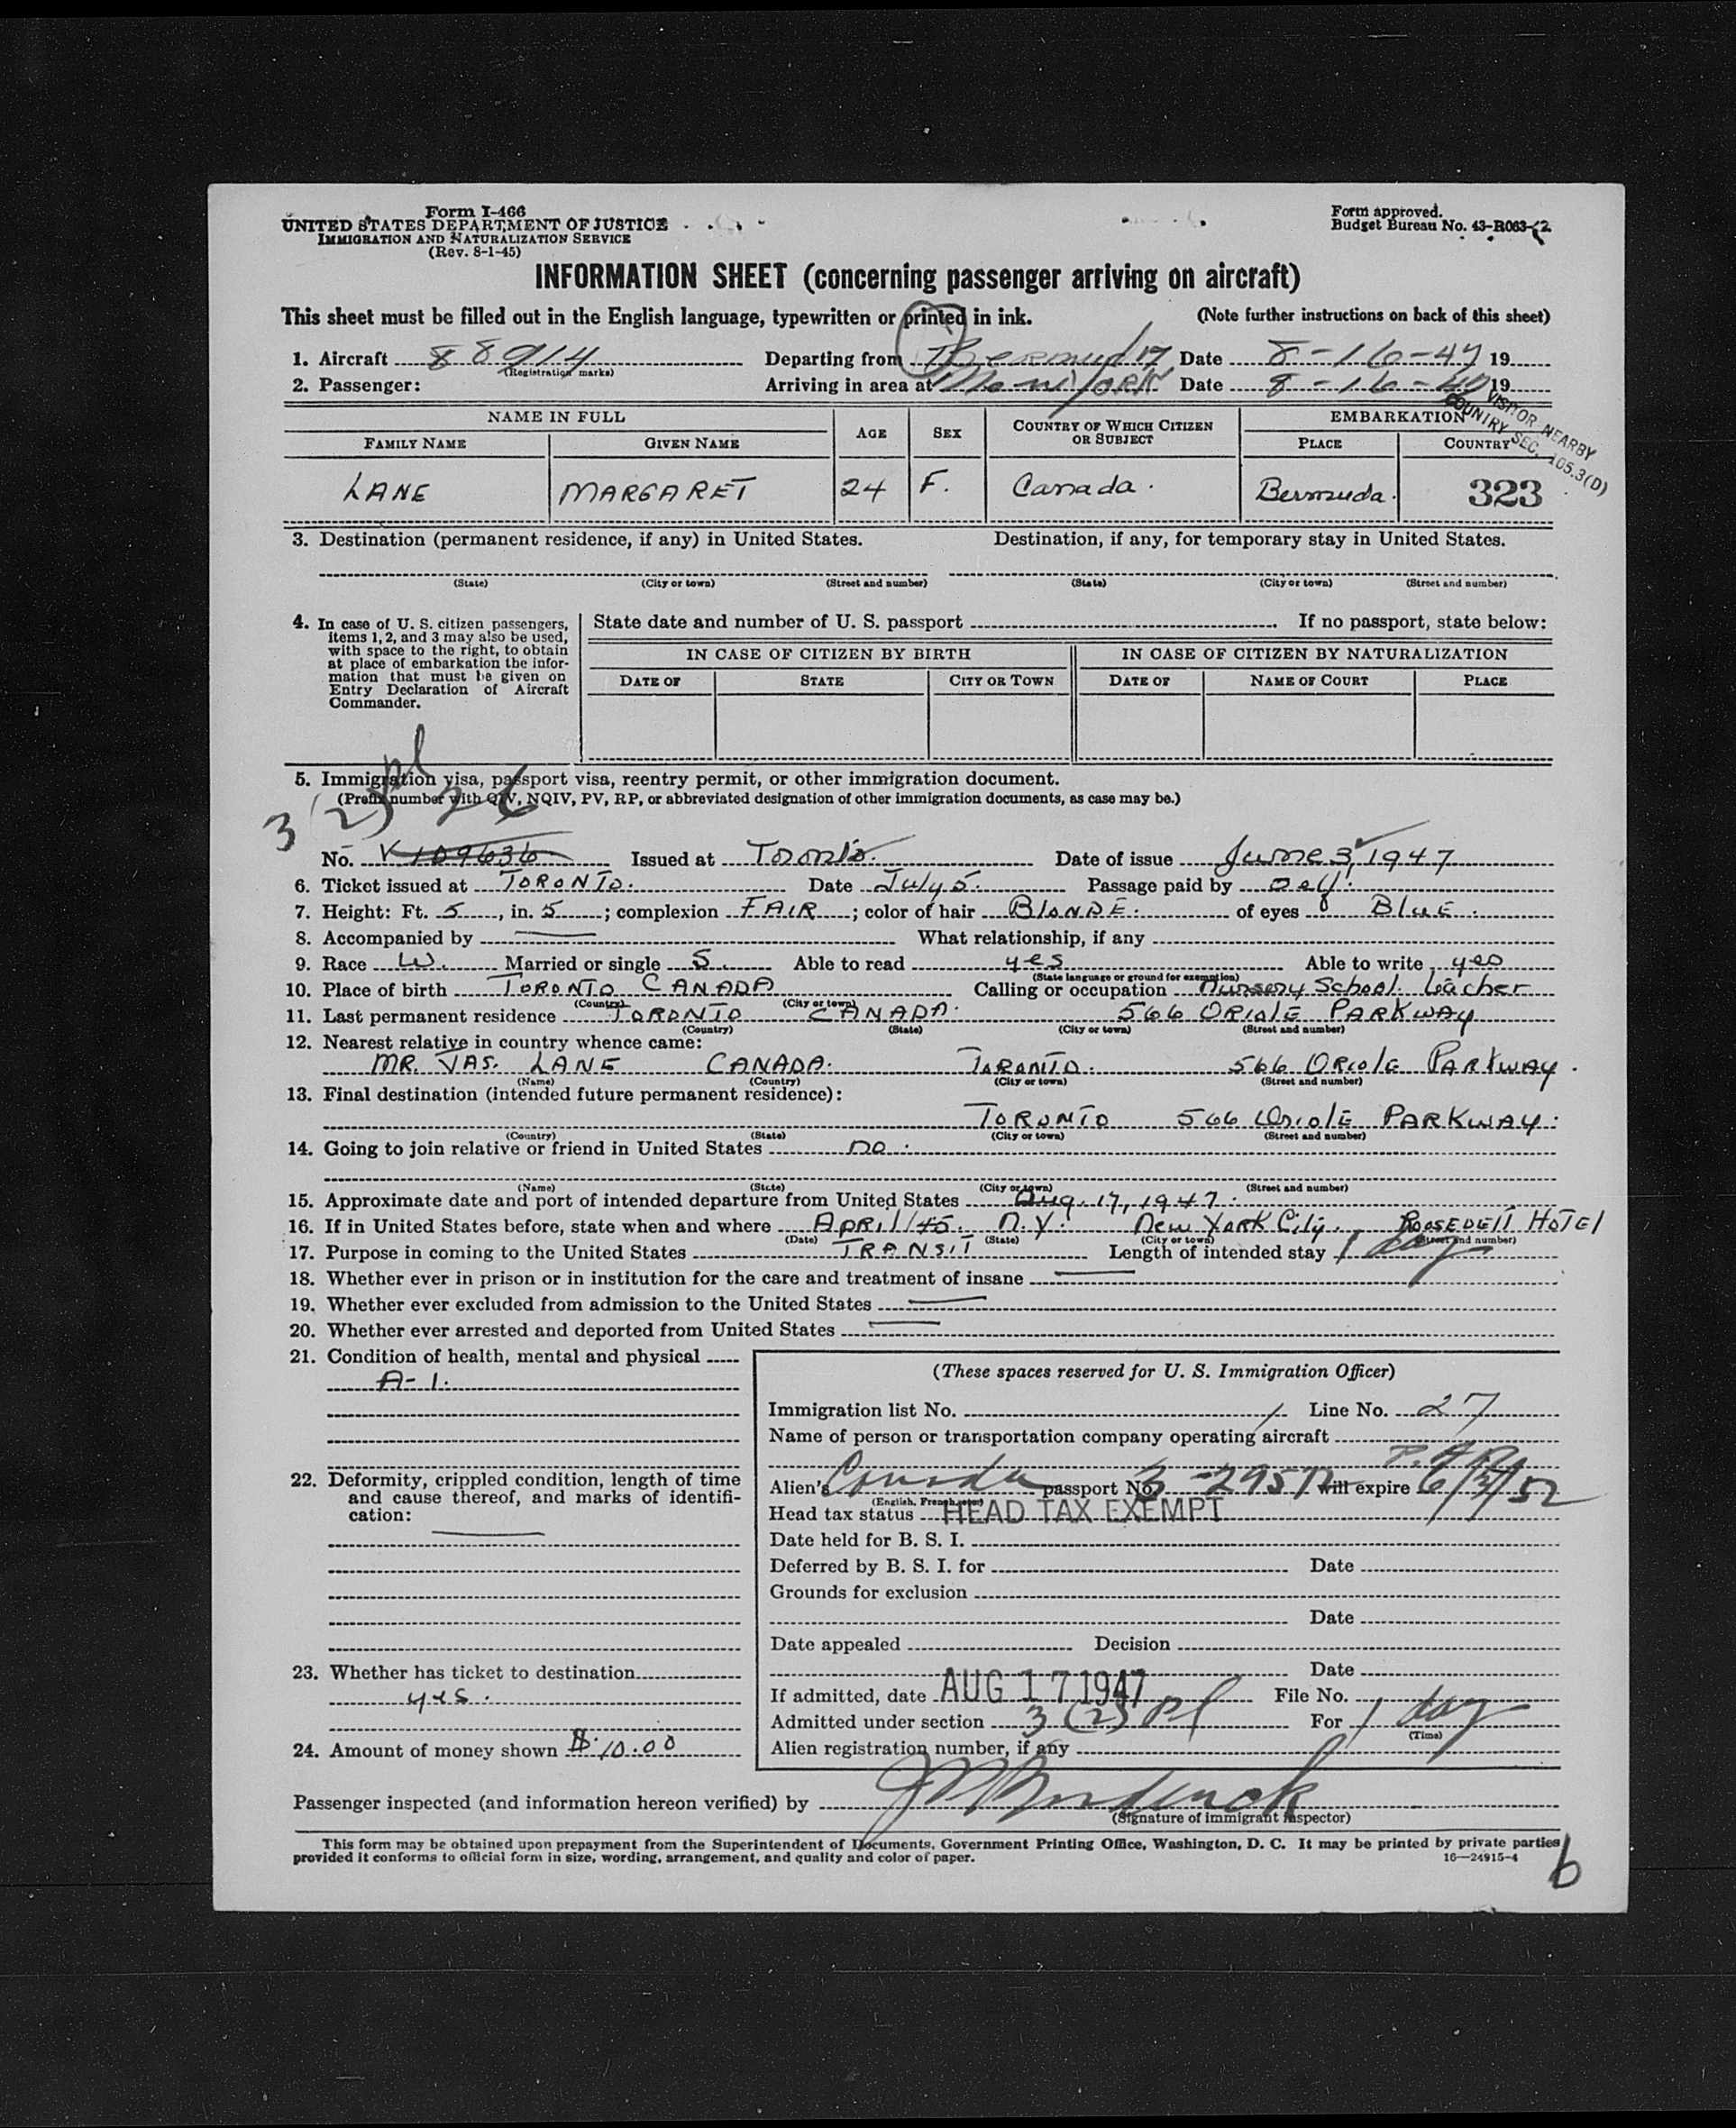 Form I-466
UNITED STATES DEPARTMENT OF JUSTICE
IMMIGRATION AND NATURALIZATION SERVICE
(Rev. 8-1-45)
Form approved.
Budget Bureau No. 43-R063-
INFORMATION SHEET (concerning passenger arriving on aircraft)
This sheet must be filled out in the English language, typewritten or printed in ink. (Note further instructions on back of this sheet)
1. Aircraft 88914 Departing from Bermuda Date 8-16-47 19
(Registration marks)
2. Passenger: Arriving in area at New York Date 8-16-47 19
VISITOR NEARBY
COUNTRY SEC. 105.3(D)
NAME IN FULL AGE SEX COUNTRY OF WHICH CITIZEN OR SUBJECT EMBARKATION
FAMILY NAME GIVEN NAME PLACE COUNTRY
LANE MARGARET 24 F. Canada. Bermuda. 323
3. Destination (permanent residence, if any) in United States. Destination, if any, for temporary stay in United States.
(State) (City or town) (Street and number) (State) (City or town) (Street and number)
4. In case of U. S. citizen passengers,
items 1, 2, and 3 may also be used,
with space to the right, to obtain
at place of embarkation the infor-
mation that must be given on
Entry Declaration of Aircraft
Commander.
State date and number of U. S. passport If no passport, state below:
IN CASE OF CITIZEN BY BIRTH IN CASE OF CITIZEN BY NATURALIZATION
DATE OF STATE CITY OR TOWN DATE OF NAME OF COURT PLACE
5. Immigration visa, passport visa, reentry permit, or other immigration document.
(Prefix number with QIV, NQIV, PV, RP, or abbreviated designation of other immigration documents, as case may be.)
3(2)pl 26
No. V109636 Issued at Toronto. Date of issue June 3, 1947
6. Ticket issued at TORONTO. Date July 5. Passage paid by self.
7. Height: Ft. 5, in. 5; complexion FAIR; color of hair BLONDE. of eyes BLUE.
8. Accompanied by What relationship, if any
9. Race W. Married or single S. Able to read yes Able to write yes
(State language or ground for exemption)
10. Place of birth TORONTO CANADA Calling or occupation Nursery School teacher
(Country) (City or town)
11. Last permanent residence TORONTO CANADA. 566 ORIOLE PARKWAY
(Country) (State) (City or town) (Street and number)
12. Nearest relative in country whence came:
MR. JAS. LANE CANADA. TORONTO. 566 ORIOLE PARKWAY.
(Name) (Country) (City or town) (Street and number)
13. Final destination (intended future permanent residence):
TORONTO 566 ORIOLE PARKWAY.
(Country) (State) (City or town) (Street and number)
14. Going to join relative or friend in United States no.
(Name) (State) (City or town) (Street and number)
15. Approximate date and port of intended departure from United States Aug. 17, 1947.
16. If in United States before, state when and where APRIL/45. N.Y. NEW YORK CITY. ROOSEVELT HOTEL
(Date) (State) (City or town) (Street and number)
17. Purpose in coming to the United States TRANSIT Length of intended stay 1 day
18. Whether ever in prison or in institution for the care and treatment of insane
19. Whether ever excluded from admission to the United States
20. Whether ever arrested and deported from United States
21. Condition of health, mental and physical
A-1.
22. Deformity, crippled condition, length of time
and cause thereof, and marks of identifi-
cation:
23. Whether has ticket to destination
yes.
24. Amount of money shown $10.00
(These spaces reserved for U. S. Immigration Officer)
Immigration list No. 1 Line No. 27
Name of person or transportation company operating aircraft
Alien's Canada passport No. 3-2957 will expire 6/3/52
(English, French, etc.)
Head tax status HEAD TAX EXEMPT
Date held for B. S. I.
Deferred by B. S. I. for Date
Grounds for exclusion
Date
Date appealed Decision
Date
If admitted, date AUG 17 1947 File No.
Admitted under section 3 (2) Pl For 1 day
(Time)
Alien registration number, if any
Passenger inspected (and information hereon verified) by
(Signature of immigrant inspector)
This form may be obtained upon prepayment from the Superintendent of Documents, Government Printing Office, Washington, D. C. It may be printed by private parties
provided it conforms to official form in size, wording, arrangement, and quality and color of paper. 16—24915-4
6